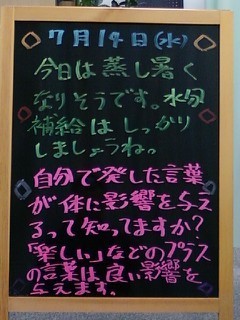 7月14日(水)
今日は蒸し暑く
なりそうです。水分
補給はしっかり
しましょうね。
自分で発した言葉
が体に影響を与え
るって知ってますか?
「楽しい」などのプラス
の言葉は良い影響を
与えます。